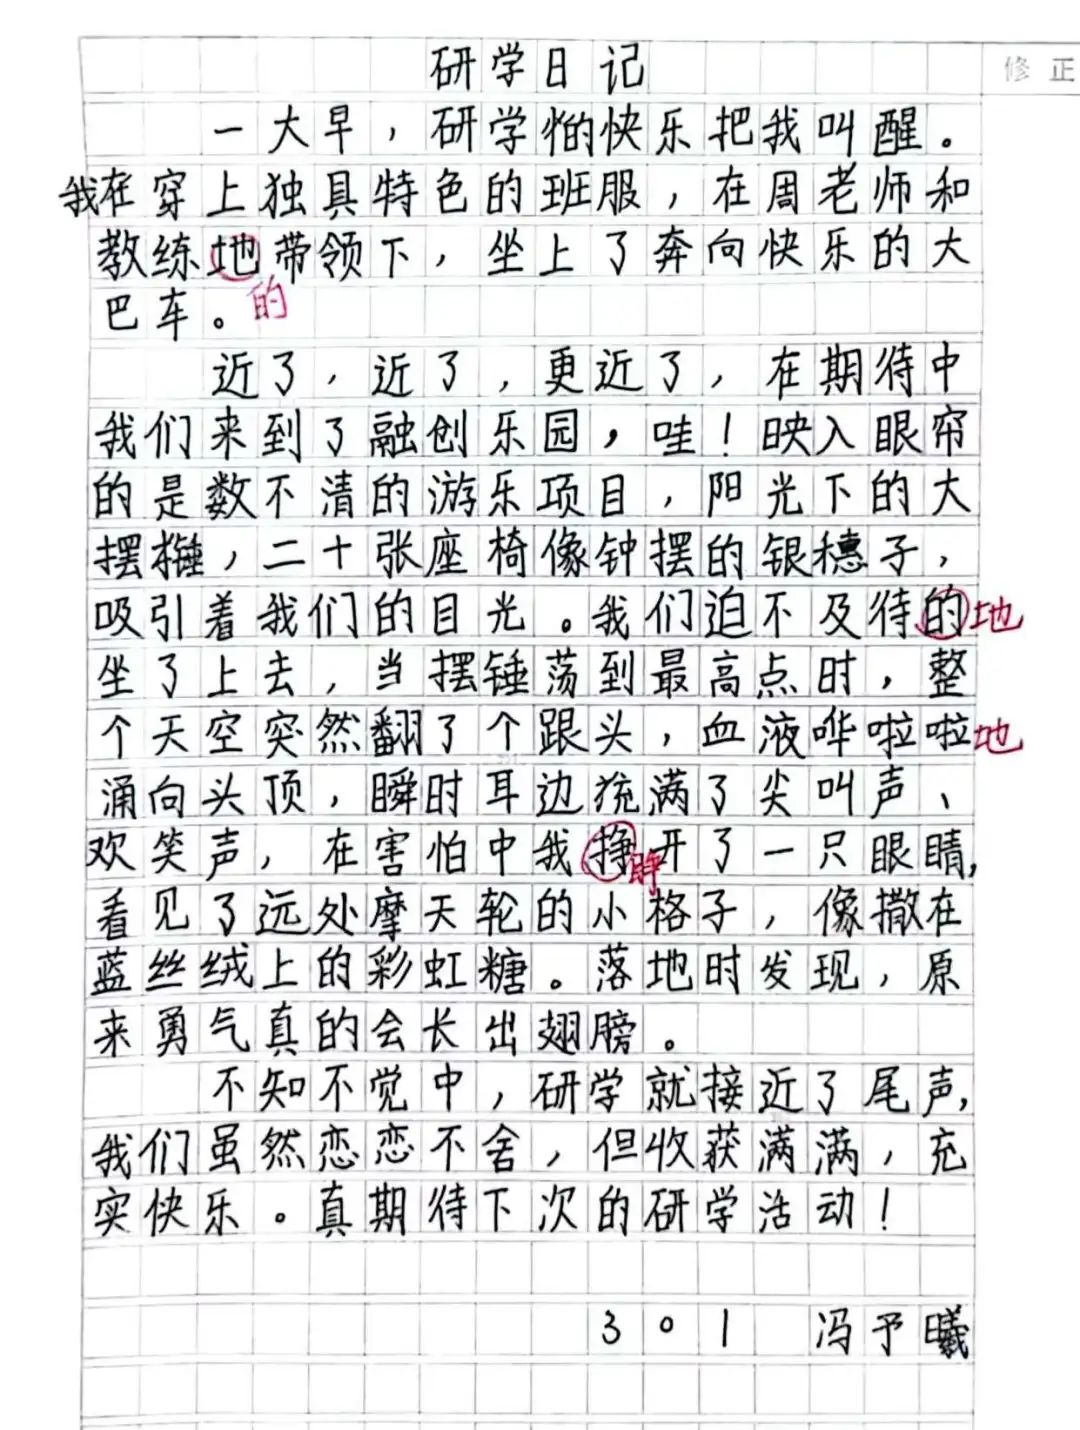 研学日记
修正
一大早，研学的快乐把我叫醒。
我在穿上独具特色的班服，在周老师和
教练地带领下，坐上了奔向快乐的大
巴车。的
近了，近了，更近了，在期待中
我们来到了融创乐园，哇！映入眼帘
的是数不清的游乐项目，阳光下的大
摆锤，二十张座椅像钟摆的银穗子，
吸引着我们的目光。我们迫不及待的地
坐了上去，当摆锤荡到最高点时，整
个天空突然翻了个跟头，血液哗啦啦地
涌向头顶，瞬时耳边充满了尖叫声、
欢笑声，在害怕中我挣睁开了一只眼睛，
看见了远处摩天轮的小格子，像撒在
蓝丝绒上的彩虹糖。落地时发现，原
来勇气真的会长出翅膀。
不知不觉中，研学就接近了尾声，
我们虽然恋恋不舍，但收获满满，充
实快乐。真期待下次的研学活动！
301 冯予曦